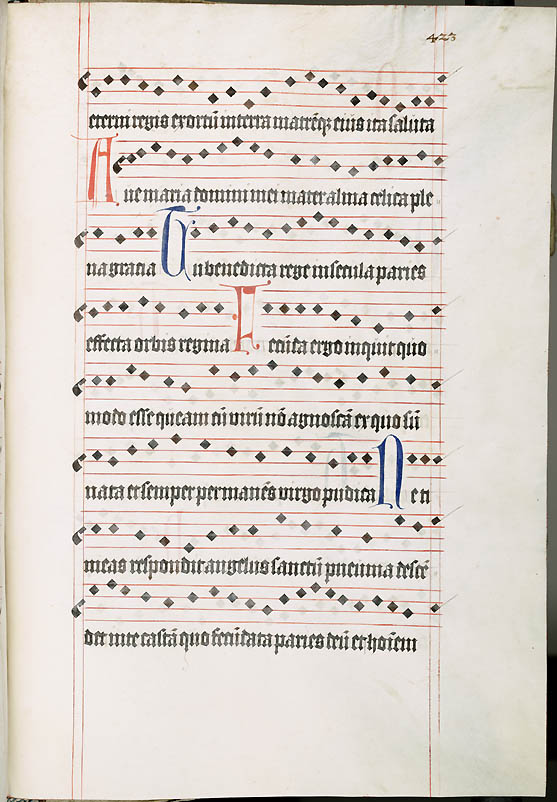 423
eterni regis exortū in terra matrēq; eius ita saluta
Aue maria domini mei mater alma celica ple
na gracia Tu benedicta rege in secula paries
effecta orbis regina Fecūda ergo inquit quo
modo esse queam cū virū nō agnoscā ex quo sū
nata et semper permanēs virgo pudica Ne ti
meas respondit angelus sanctū pneuma descē
det in te castā quo fecūdata paries deū et hoīem